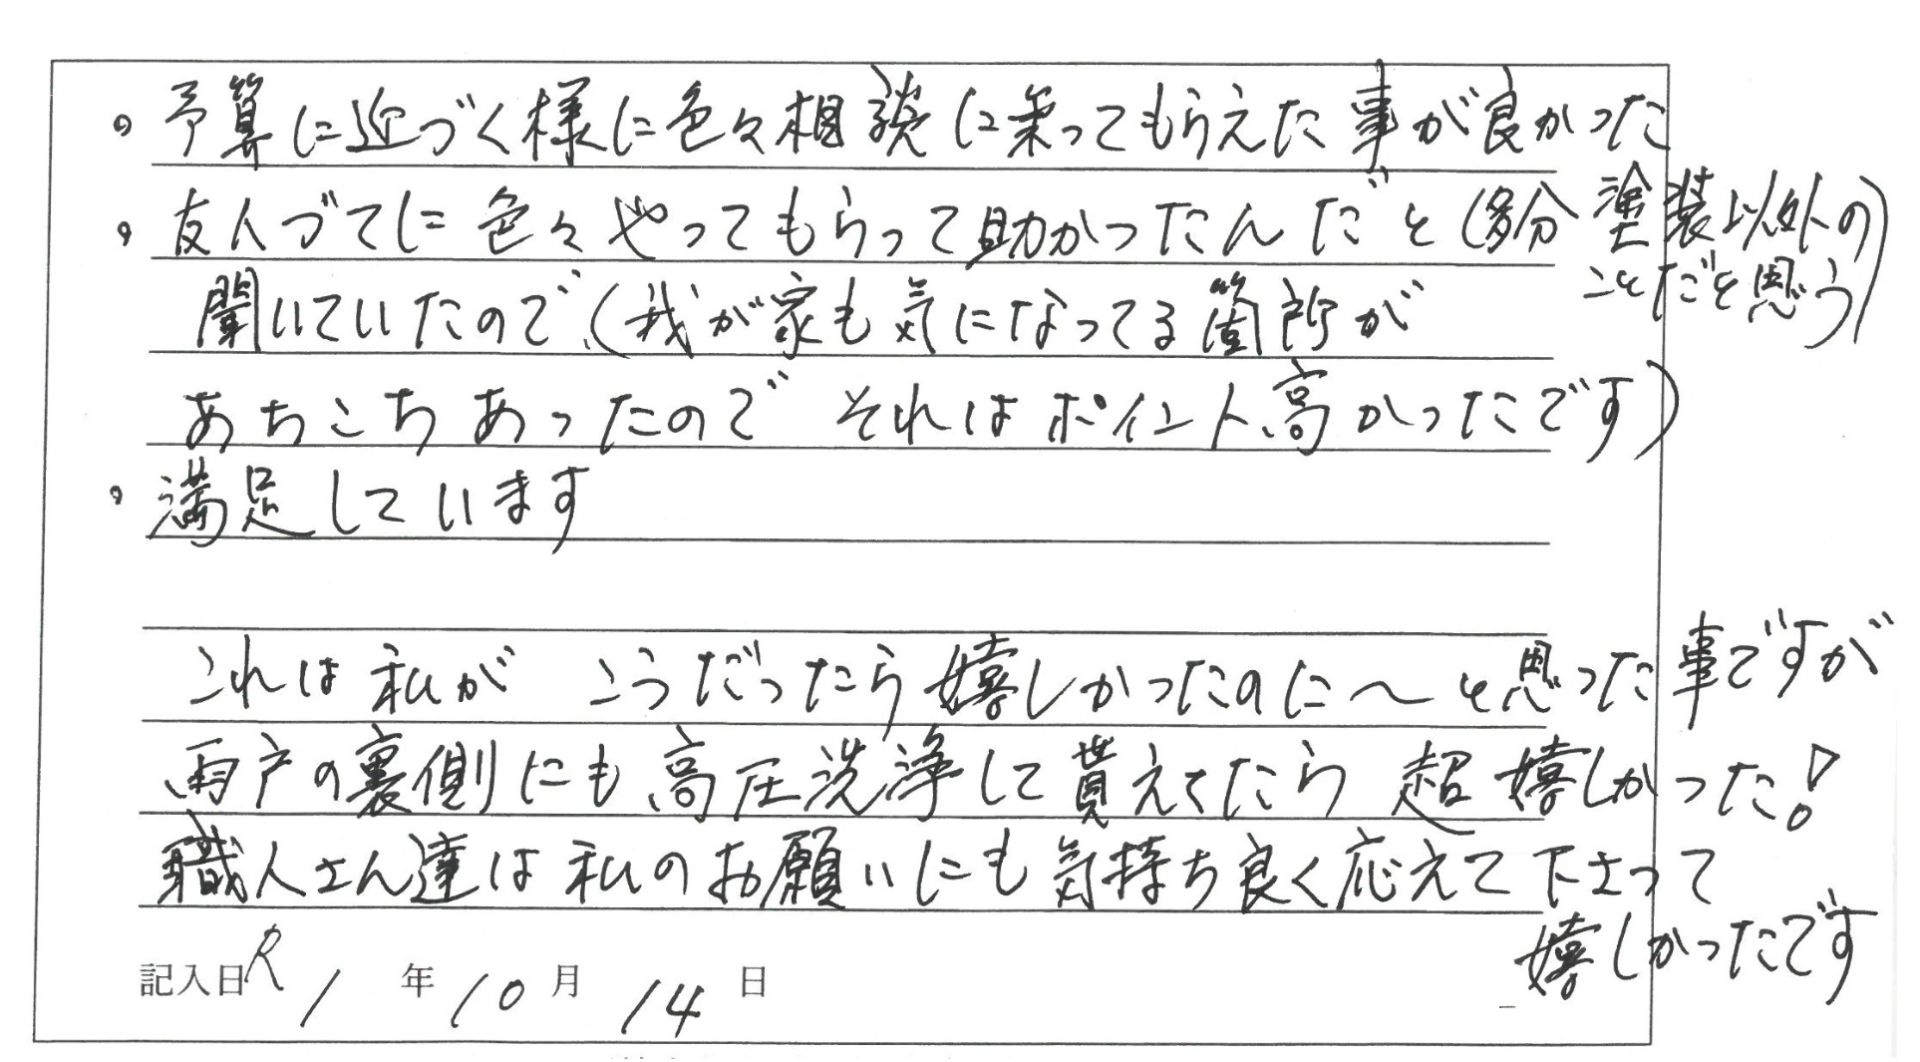 。予算に近づく様に色々相談に乗ってもらえた事が良かった
。友人づてに色々やってもらって助かったんだと(多分塗装以外の
ことだと思う)
聞いていたので、(我が家も気になってる箇所が
あちこちあったので それはポイント高かったです)
。満足しています
これは私が こうだったら嬉しかったのに〜と思った事ですが
雨戸の裏側にも高圧洗浄して貰えてたら 超嬉しかった!
職人さん達は私のお願いにも気持ち良く応えて下さって
嬉しかったです
記入日R1年10月14日